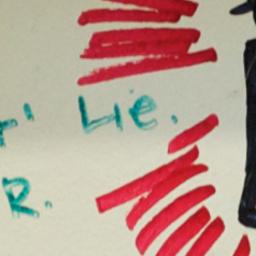 ' Lie.
R.